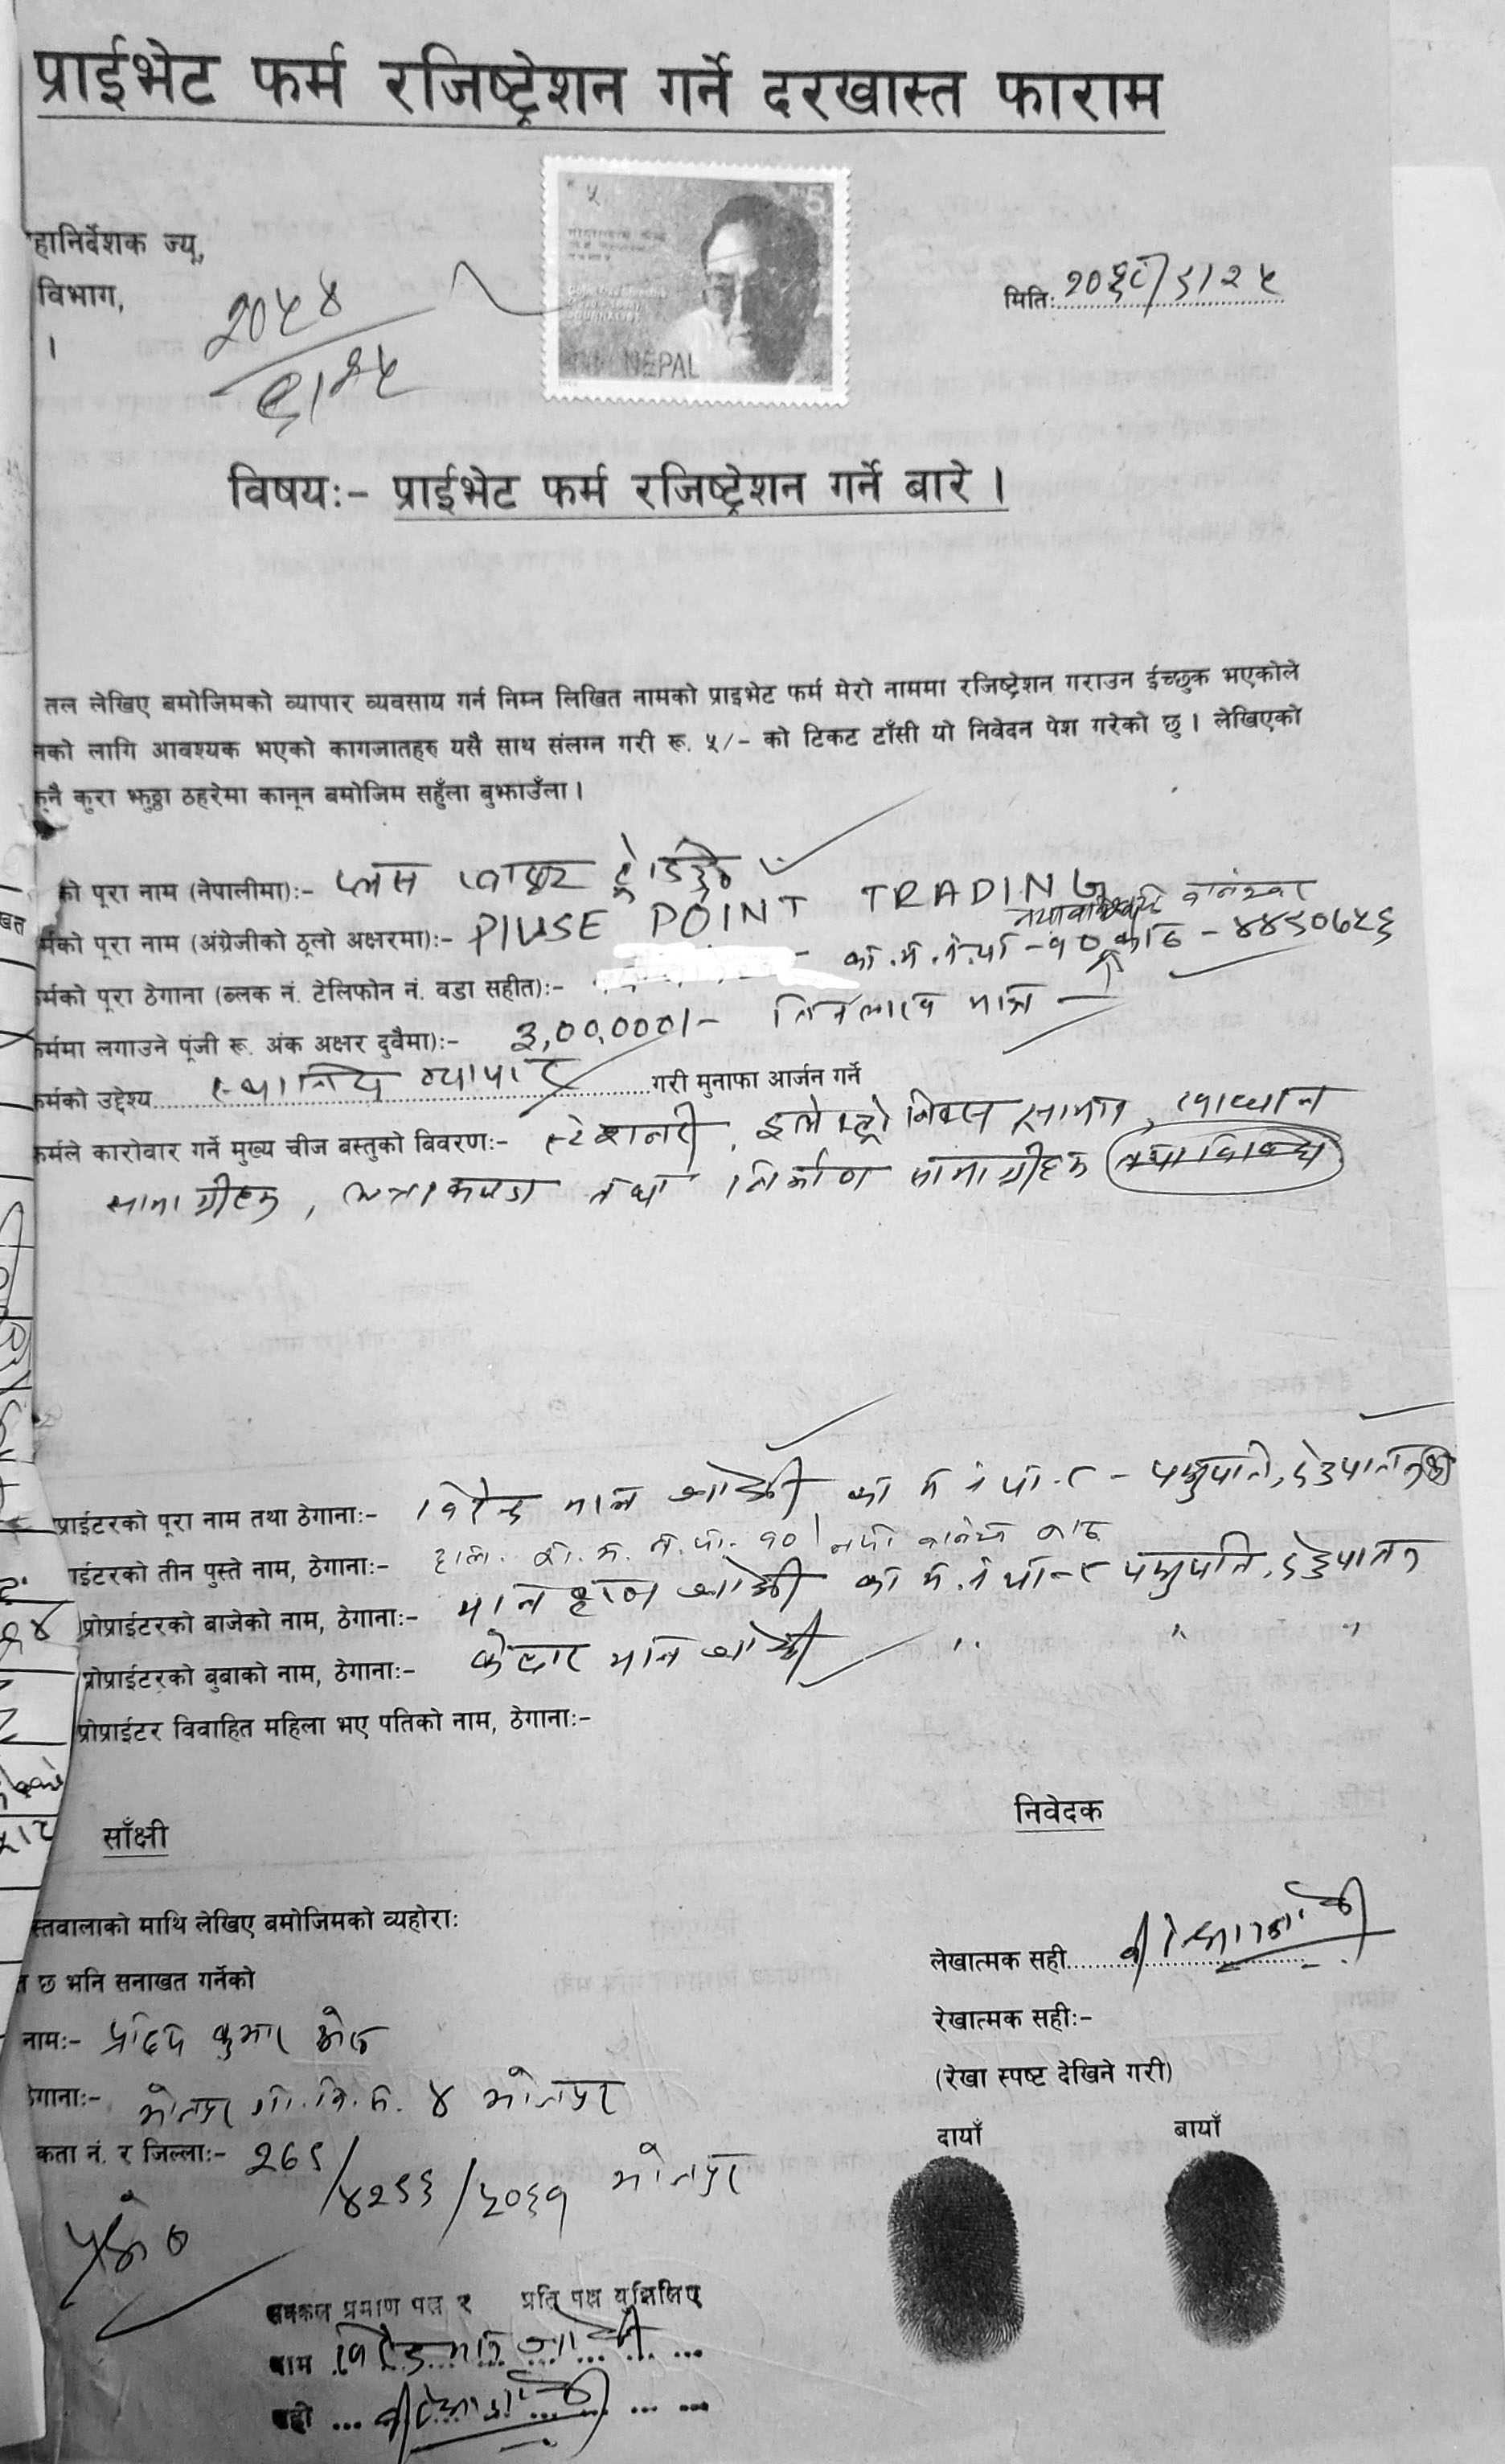 प्राईभेट फर्म रजिष्ट्रेशन गर्ने दरखास्त फाराम
हानिर्देशक ज्यू,
विभाग,
।
५ 5
NEPAL
मिति:
विषय:- प्राईभेट फर्म रजिष्ट्रेशन गर्ने बारे ।
तल लेखिए बमोजिमको व्यापार व्यवसाय गर्न निम्न लिखित नामको प्राइभेट फर्म मेरो नाममा रजिष्ट्रेशन गराउन ईच्छुक भएकोले
नको लागि आवश्यक भएको कागजातहरु यसै साथ संलग्न गरी रू. ५/- को टिकट टाँसी यो निवेदन पेश गरेको छु । लेखिएको
कुनै कुरा झुठ्ठा ठहरेमा कानून बमोजिम सहुँला बुझाउँला ।
को पूरा नाम (नेपालीमा):- प्लस प्वाइन्ट ट्रेडिङ्ग
र्मको पूरा नाम (अंग्रेजीको ठूलो अक्षरमा):- PIUSE POINT TRADING
र्मको पूरा ठेगाना (ब्लक नं. टेलिफोन नं. वडा सहीत):- का.म.न.पा -१०
र्ममा लगाउने पूंजी रू. अंक अक्षर दुवैमा):- ३,००,०००/- तिनलाख मात्र
र्मको उद्देश्य स्थानिय व्यापार गरी मुनाफा आर्जन गर्ने
र्मले कारोवार गर्ने मुख्य चीज बस्तुको बिवरण:- स्टेशनरी, इलेक्ट्रोनिक्स सामान, खाद्यान्न
सामाग्रीहरू, लत्ताकपडा तथा निर्माण सामाग्रीहरू
प्राईटरको पूरा नाम तथा ठेगाना:- मान जोशी का म न पा-८ - पशुपति,
ाईटरको तीन पुस्ते नाम, ठेगाना:- हाल. का. म. न. पा. १०
प्रोप्राईटरको बाजेको नाम, ठेगाना:- मान जोशी का म.न पा-८ पशुपति,
प्रोप्राईटरको बुबाको नाम, ठेगाना:- केदार मान जोशी " " "
प्रोप्राईटर विवाहित महिला भए पतिको नाम, ठेगाना:-
साँक्षी
निवेदक
स्तवालाको माथि लेखिए बमोजिमको व्यहोरा:
त छ भनि सनाखत गर्नेको
नाम:- प्रदिप कुमार
ठेगाना:- भोजपुर गा.बि.स. ४ भोजपुर
कता नं. र जिल्ला:- भोजपुर
लेखात्मक सही
रेखात्मक सही:-
(रेखा स्पष्ट देखिने गरी)
दायाँ बायाँ
सक्कल प्रमाण पत्र र प्रति पक्ष बुझिलिए
नाम
सही